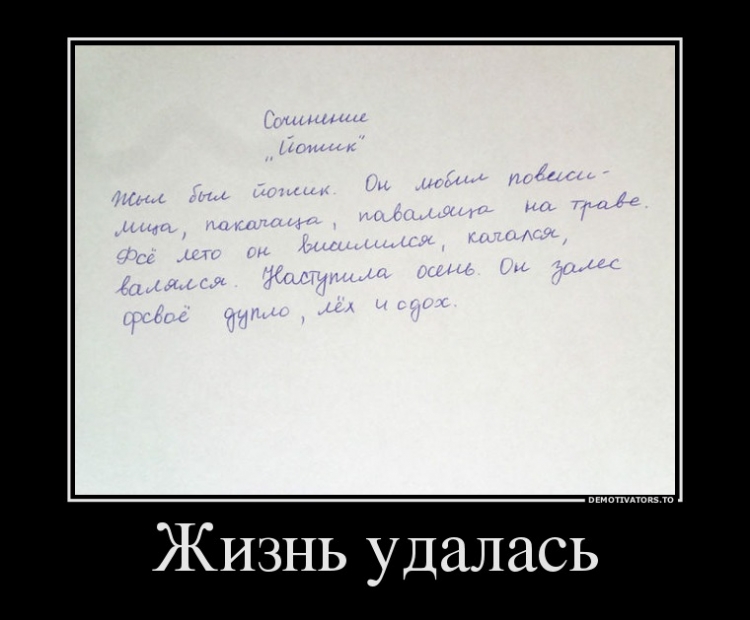 Сочинение
„Йожик"
Жыл был йожик. Он любил повиси-
лица, пакачаца, паваляца на траве.
Фсё лето он висилился, качался,
валялся. Наступила осень. Он залес
фсваё дупло, лёх и сдох.
DEMOTIVATORS.TO
Жизнь удалась